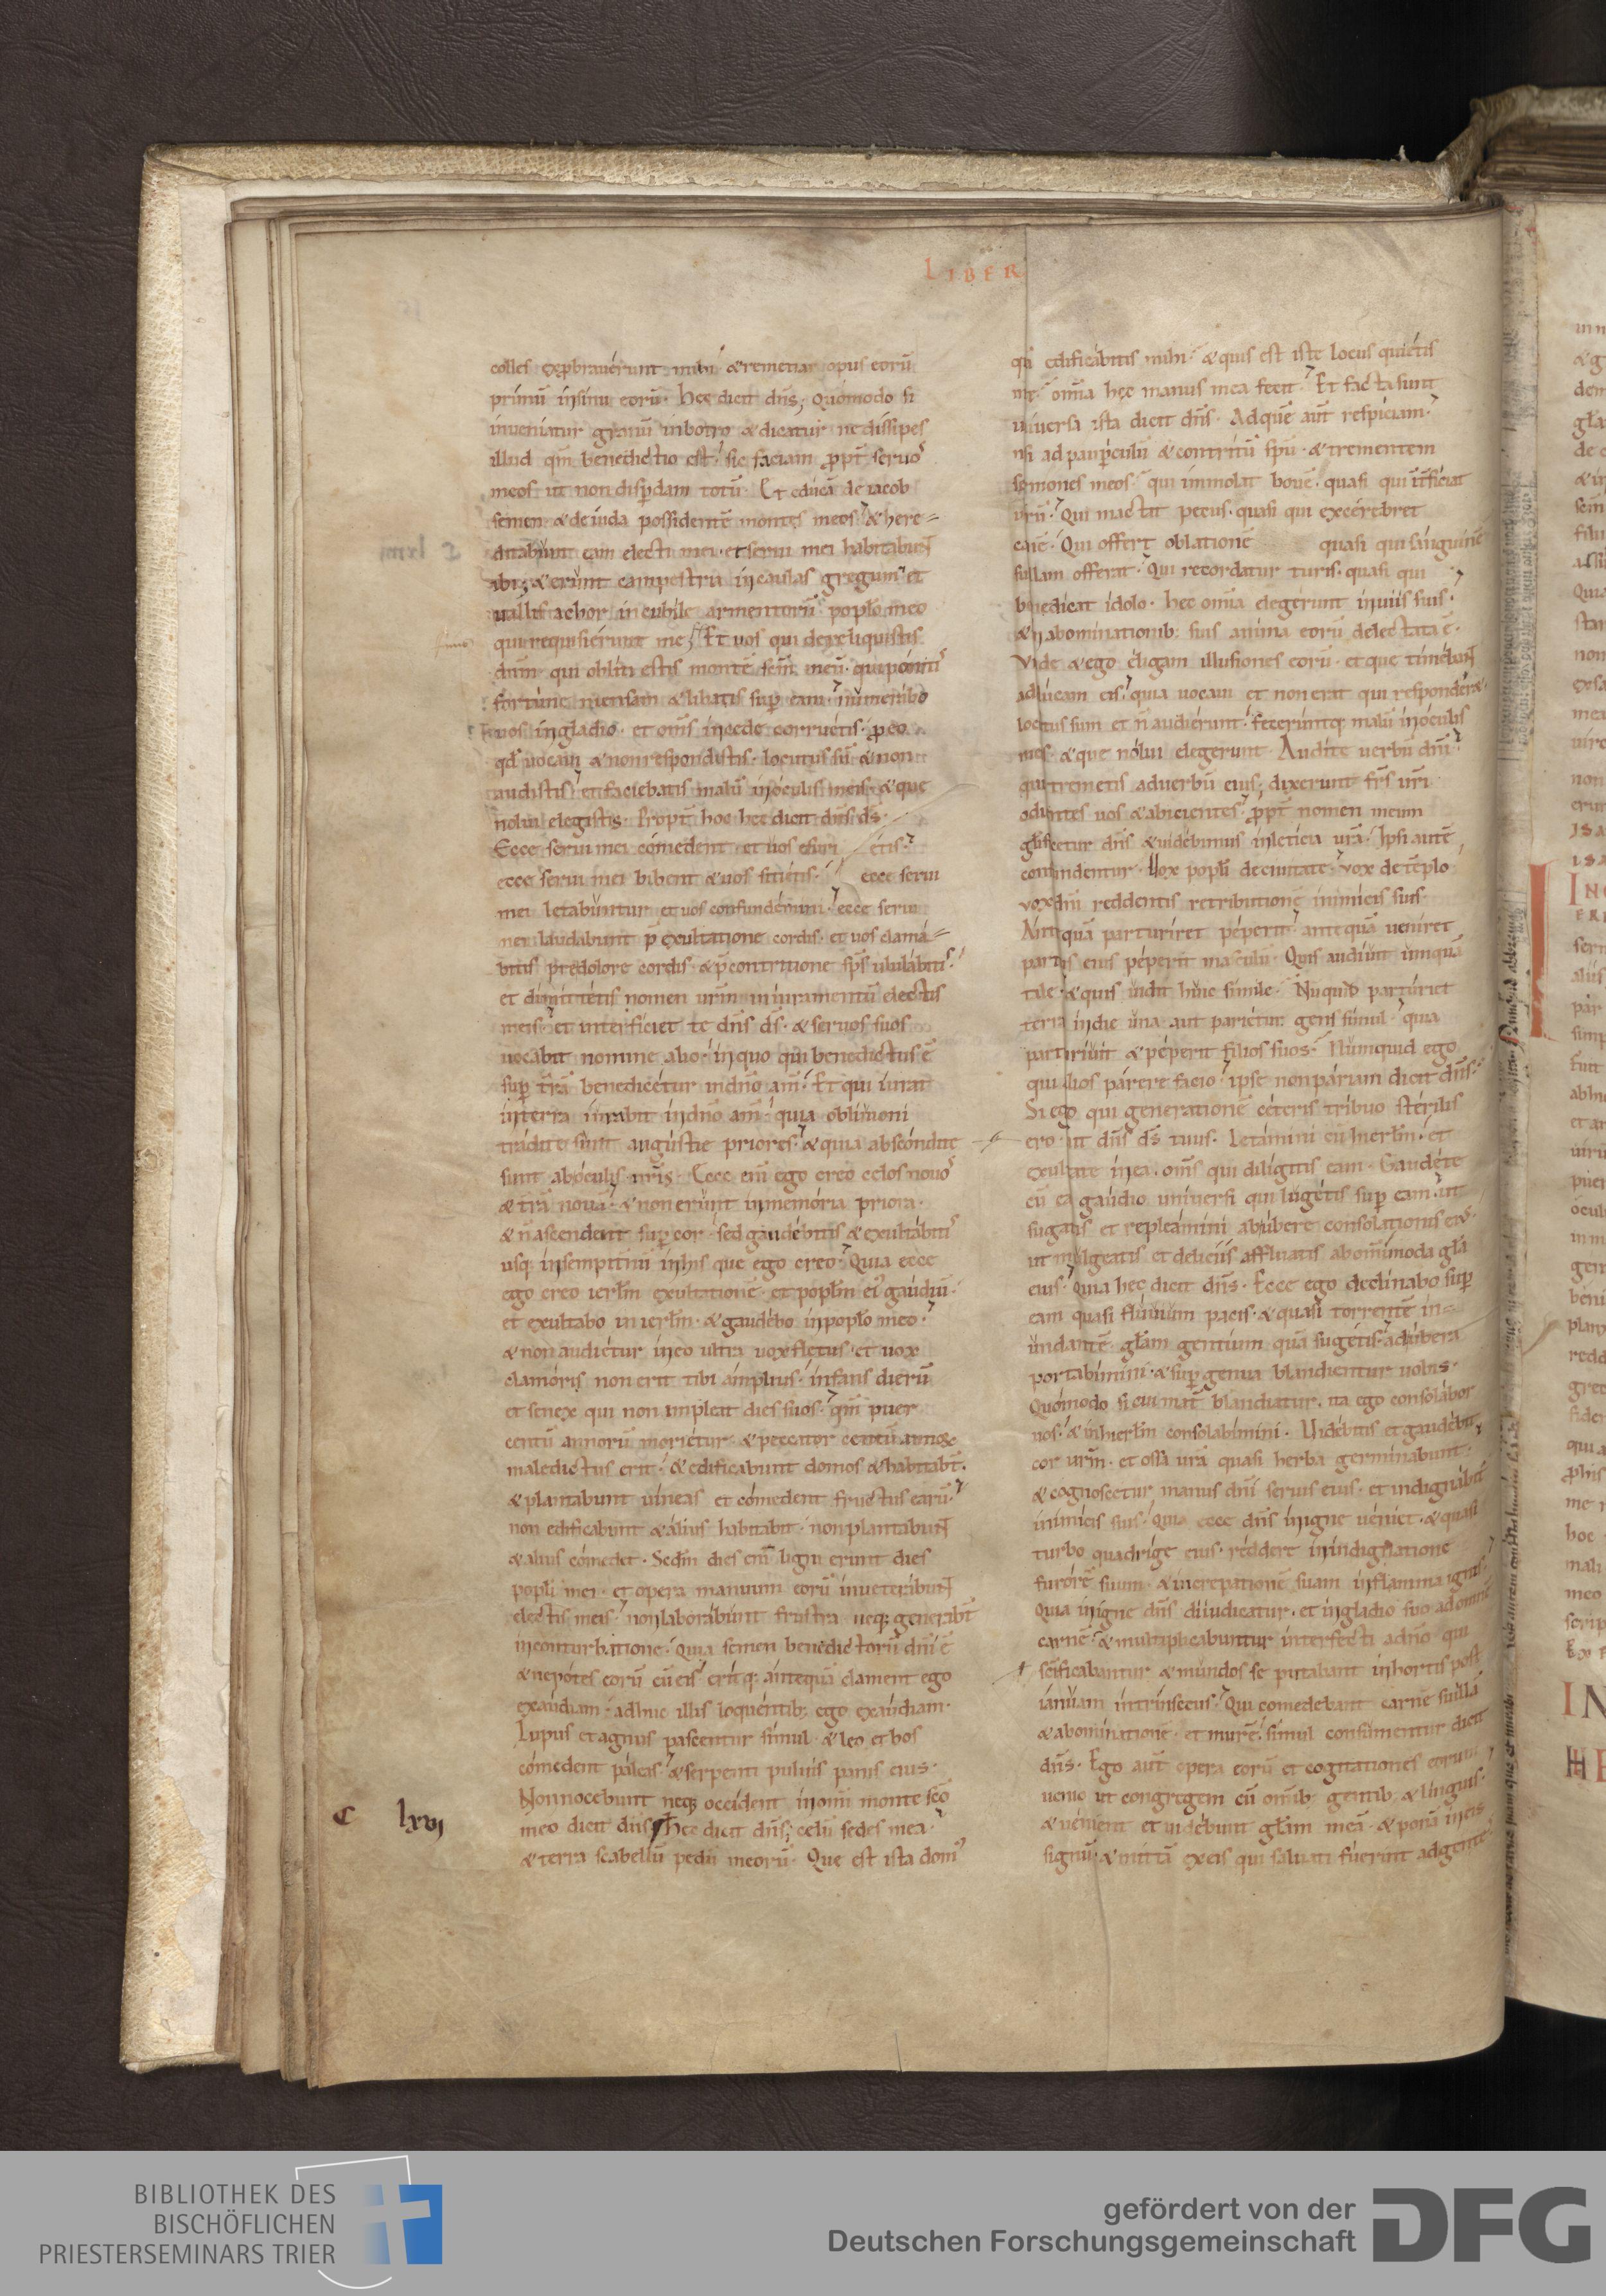 LIBER
colles exprobraverunt mihi & remetiar opus eorū
primū insinu eorū. Hec dicit dn̄s, Quómodo si
inveniatur granū inbotro & dicatur ne dissipes
illud qm̄ benedictio est. sic faciam ꝓpt̄ servoˢ
meos ut non disꝑdam totū. Et educā de iacob
semen & de iuda possidentē montes meos & here-
ditabunt eam electi mei. et servi mei habitabuɴᴛ
ibi; & erunt campestria incaulas gregum et
vallis achor incubile armentorū poplo meo
qui requisiérunt me; Et vos qui dereliquistis
dn̄m qui obliti estis montē sc̄m meū. qui pónitiˢ
fortune mensam & libatis suꝑ eam. innumerabo
vos ingladio. et om̄s incede corruetis. ꝓ eo
qd̄ vocavi & non respondistis. locutus sū & non
audistis et faciebatis malū inóculis meis & que
nolui elegistis. Propt̄ hoc hec dicit dn̄s ds̄.
Ecce servi mei cómedent et vos esuri etis.
ecce servi mei bibent & vos sitietis. ecce servi
mei letabuntur et vos confundémini. ecce servi
mei laudabunt p̄ exultatione cordis. et vos clamá-
bitis predolore cordis. & p̄ contritione sp̄s ululábitiˢ.
et dimittétis nomen vrm̄ iniuramentū electis
meis. et interficiet te dn̄s ds̄. & servos suos
vocabit nomine alio. inquo qui benedictus ē
suꝑ trā benedicétur indn̄o am̄. Et qui iurat
interra iurabit indn̄o am̄. quia oblivioni
tradite sunt angústie priores. & quia abscóndite
sunt abóculis nrīs. Ecce enī ego creo celos novoˢ
& trā novā. & non erunt inmemória priora.
& n̄ ascendent suꝑ cor. sed gaudébitis & exultábitiˢ
usq; insempitnū inhis que ego creo. Quia ecce
ego creo ierlm̄ exultationē. et popl̄m eiˢ gaudiū.
et exultabo in ierlm̄. & gaudébo inpoplo meo.
& non audiétur ineo ultra vox fletus et vox
clamóris non erit tibi ámplius. infans dierū
et senex qui non impleat dies suos. qm̄ puer
centū annorū moriétur & peccator centū annoꝝ
maledictus erit. & edificabunt domos & habitabt̄.
& plantabunt víneas et cómedent fructus earū.
non edificabunt & álius habitabit. non plantabuɴᴛ
& alius cómedet. Scdm̄ dies enī ligni erunt dies
popli mei. et opera manuum eorū inveteribuɴᴛ
electis meis. non laborábunt frustra neq; generabt̄
inconturbatione. Quia semen benedictorū dn̄i ē
& nepótes eorū cū eis eritq; ántequā clament ego
exaudiam. adhuc illis loquéntib; ego exaudiam.
Lupus et agnus pascentur simul. & leo et bos
cómedent páleas. & serpenti pulvis panis eius.
Non nocebunt neq; occident inom̄i monte scō
C lxvi
meo dicit dn̄s. Hec dicit dn̄s; celū sedes mea.
& terra scabellū pedū meorū. Que est ista domˢ
quā edificábitis mihi. & quis est iste locus quiétis
mee. om̄ia hec manus mea fecit. Et facta sunt
universa ista dicit dn̄s. Adquē aut̄ respíciam.
nisi ad pauꝑculū & contritū spū. & trementem
sermones meos. qui ímmolat bovē. quasi qui intficiat
virū. Qui mactat pecus. quasi qui excérebret
canē. Qui offert oblationē quasi qui sánguinē
suillam offerat. Qui recordatur turis. quasi qui
benedicat ídolo. hec om̄ia elegerunt inviis suis.
& inabominationib; suis anima eorū delectata ē.
Vnde & ego éligam illusiones eorū. et que timébaɴᴛ
addúcam eis. quia vocavi et non erat qui respondéret.
locutus sum et n̄ audiérunt. fecerúntq; malū inóculis
meis. & que nólui elegerunt. Audite verbū dn̄i
qui tremetis adverbū eius, dixerunt frs̄ vrī
odientes vos & abicientes. ꝓpt̄ nomen meum
glificetur dn̄s & vidébimus inleticia vrā. Ipsi autē
confundentur. Vox popli decivitate. vox detēplo
vox dn̄i reddentis retributionē inimicis suis.
Antequā parturíret péperit. antequā veniret
partus eius péperit másculū. Quis audivit umquā
tale & quis vidit huic símile. Nūquid partúriet
terra indie una. aut pariétur gens simul. quia
parturivit & péperit filios suos. Númquid ego
qui alios párere facio ipse non páriam dicit dn̄s.
Si ego qui generationē céteris tribuo stérilis
ero. ait dn̄s ds̄ tuus. Letámini cū hierlm̄. et
exultate inea. om̄s qui diligitis eam. Gaudéte
cū ea gaudio. universi qui lugétis suꝑ eam. ut
sugatis et repleámini abúbere consolationis eiˢ.
ut mulgeatis et deliciis affluatis abomímoda glā
eius. Quia hec dicit dn̄s. Ecce ego declinabo suꝑ
eam quasi fluvium pacis. & quasi torrentē in-
undantē glam gentium quā sugétis. adúbera
portabimini. & suꝑ genua blandientur vobis.
Quómodo si cui mat̄ blandiatur. ita ego consolábor
vos. & inhierlm̄ consolabimini. Vidébitis et gaudébit
cor vrm̄. et ossa vrā quasi herba germinabunt.
& cognoscetur manus dn̄i servis eius. et indignábit̄
inimicis suis. Quia ecce dn̄s inigne véniet. & quasi
turbo quadríge eius. réddere inindignatione
furóre suum. & increpationē suam inflamma ignis.
Quia inigne dn̄s diiudicatur. et ingladio suo adomnē
carnē. & multiplicabuntur interfecti adn̄o qui
scīficabantur & mundos se putabant inhortis post
iánuam intrínsecus. Qui comedebant carnē suillā
& abominationē. et murē. simul consumentur dicit
dn̄s. Ego aut̄ opera eorū et cogitationes eorum
venio ut congregem cū om̄ib; gentib; & linguis.
& vénient et vidébunt glam meā. & ponā ineis
signū. & mittā exeis qui salvati fúerint adgentes.
BIBLIOTHEK DES
BISCHÖFLICHEN
PRIESTERSEMINARS TRIER
gefördert von der
Deutschen Forschungsgemeinschaft
DFG